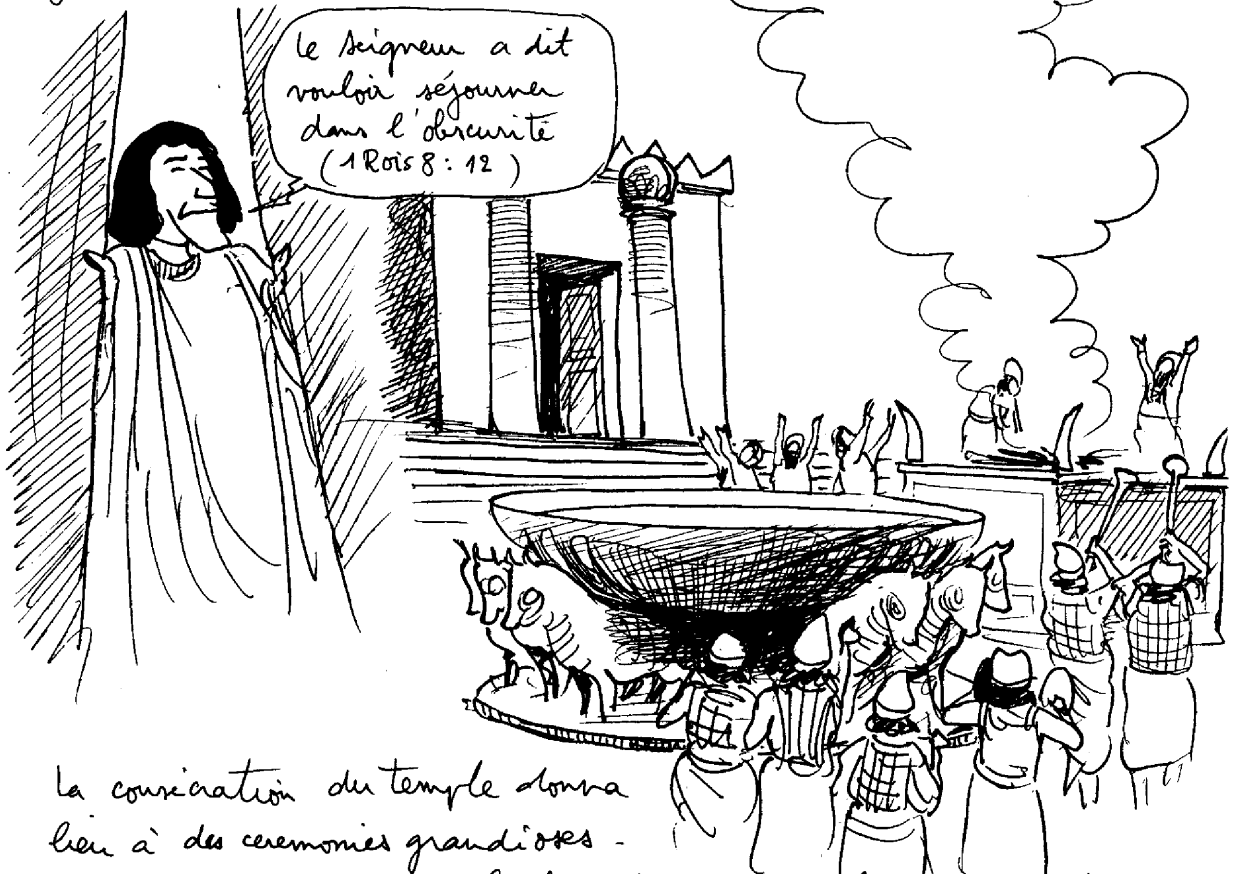 le Seigneur a dit
vouloir séjourner
dans l'obscurité
(1 Rois 8 : 12)
La consécration du temple donna
lieu à des ceremonies grandioses -